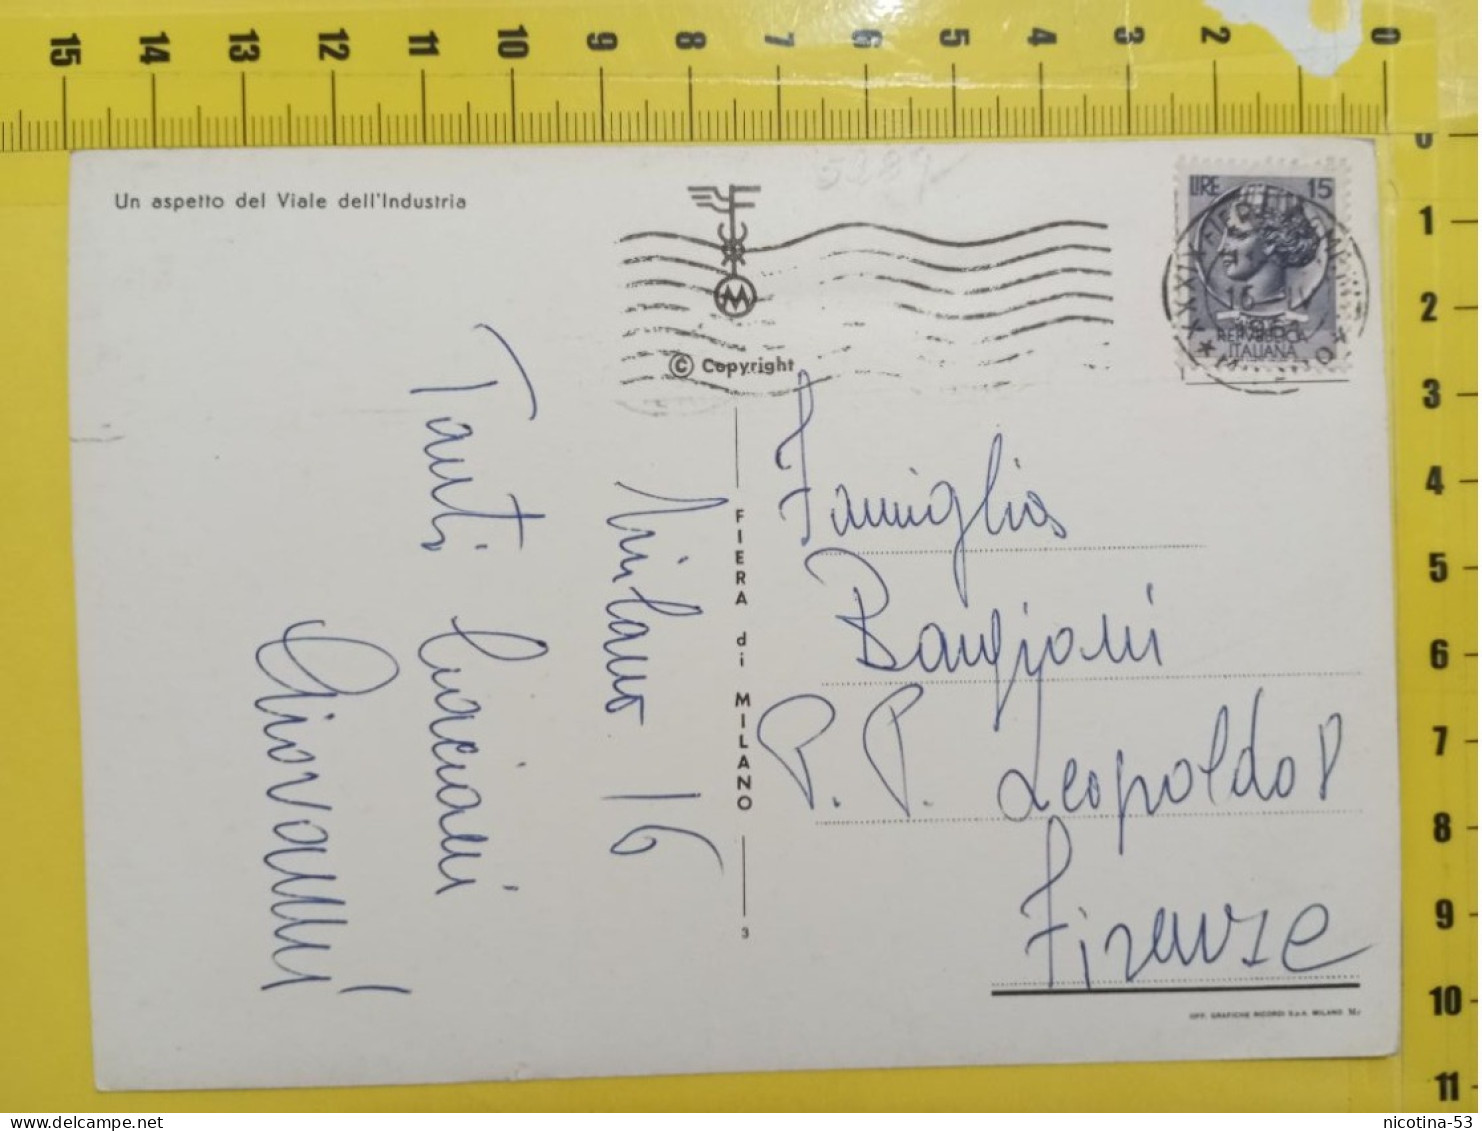 15 14 13 12 11 10 9 8 7 6 5 4 3 2 0
Un aspetto del Viale dell'Industria
5289
LIRE 15
REPVBBLICA
ITALIANA
XXXIX FIERA
1961
M
© Copyright
FIERA di MILANO
3
Milano 16
Tanti
Giovanni
Famiglia
P. P. Leopoldo 8
Firenze
OFF. GRAFICHE RICORDI S.p.A. MILANO
0
1
2
3
4
5
6
7
8
9
10
11
nicotina-53